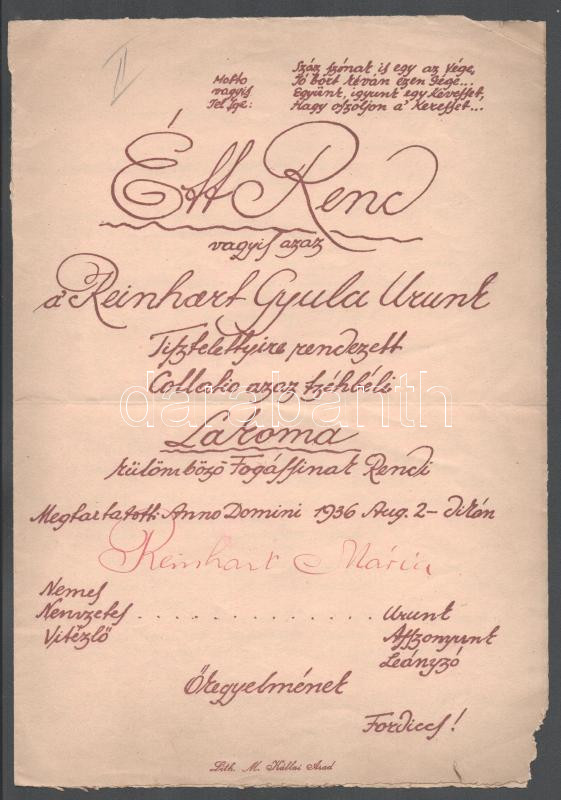 II
Száz szónak is egy az Vége,
Motto Jó bort kéván ezen Gége...
vagyis Együnk, igyunk egy Kévesset,
Jel Ige: Hagy oszoljon a' Keresset...
Étt Rend
vagyis azaz
a' Reinhart Gyula Urunk
Tisztelettyire rendezett
Collatio azaz Czéhbéli
darabanth
Lakoma
külömböző Fogássinak Rendi
Megtartatott: Anno Domini 1936 Aug. 2-dikán
Reinhart Mária
Nemes
Nemzetes .................. Urunk
Vitézlő Asszonyunk
Leányzó
Őkegyelmének
Fordiccs!
Lith. M. Kállai Arad